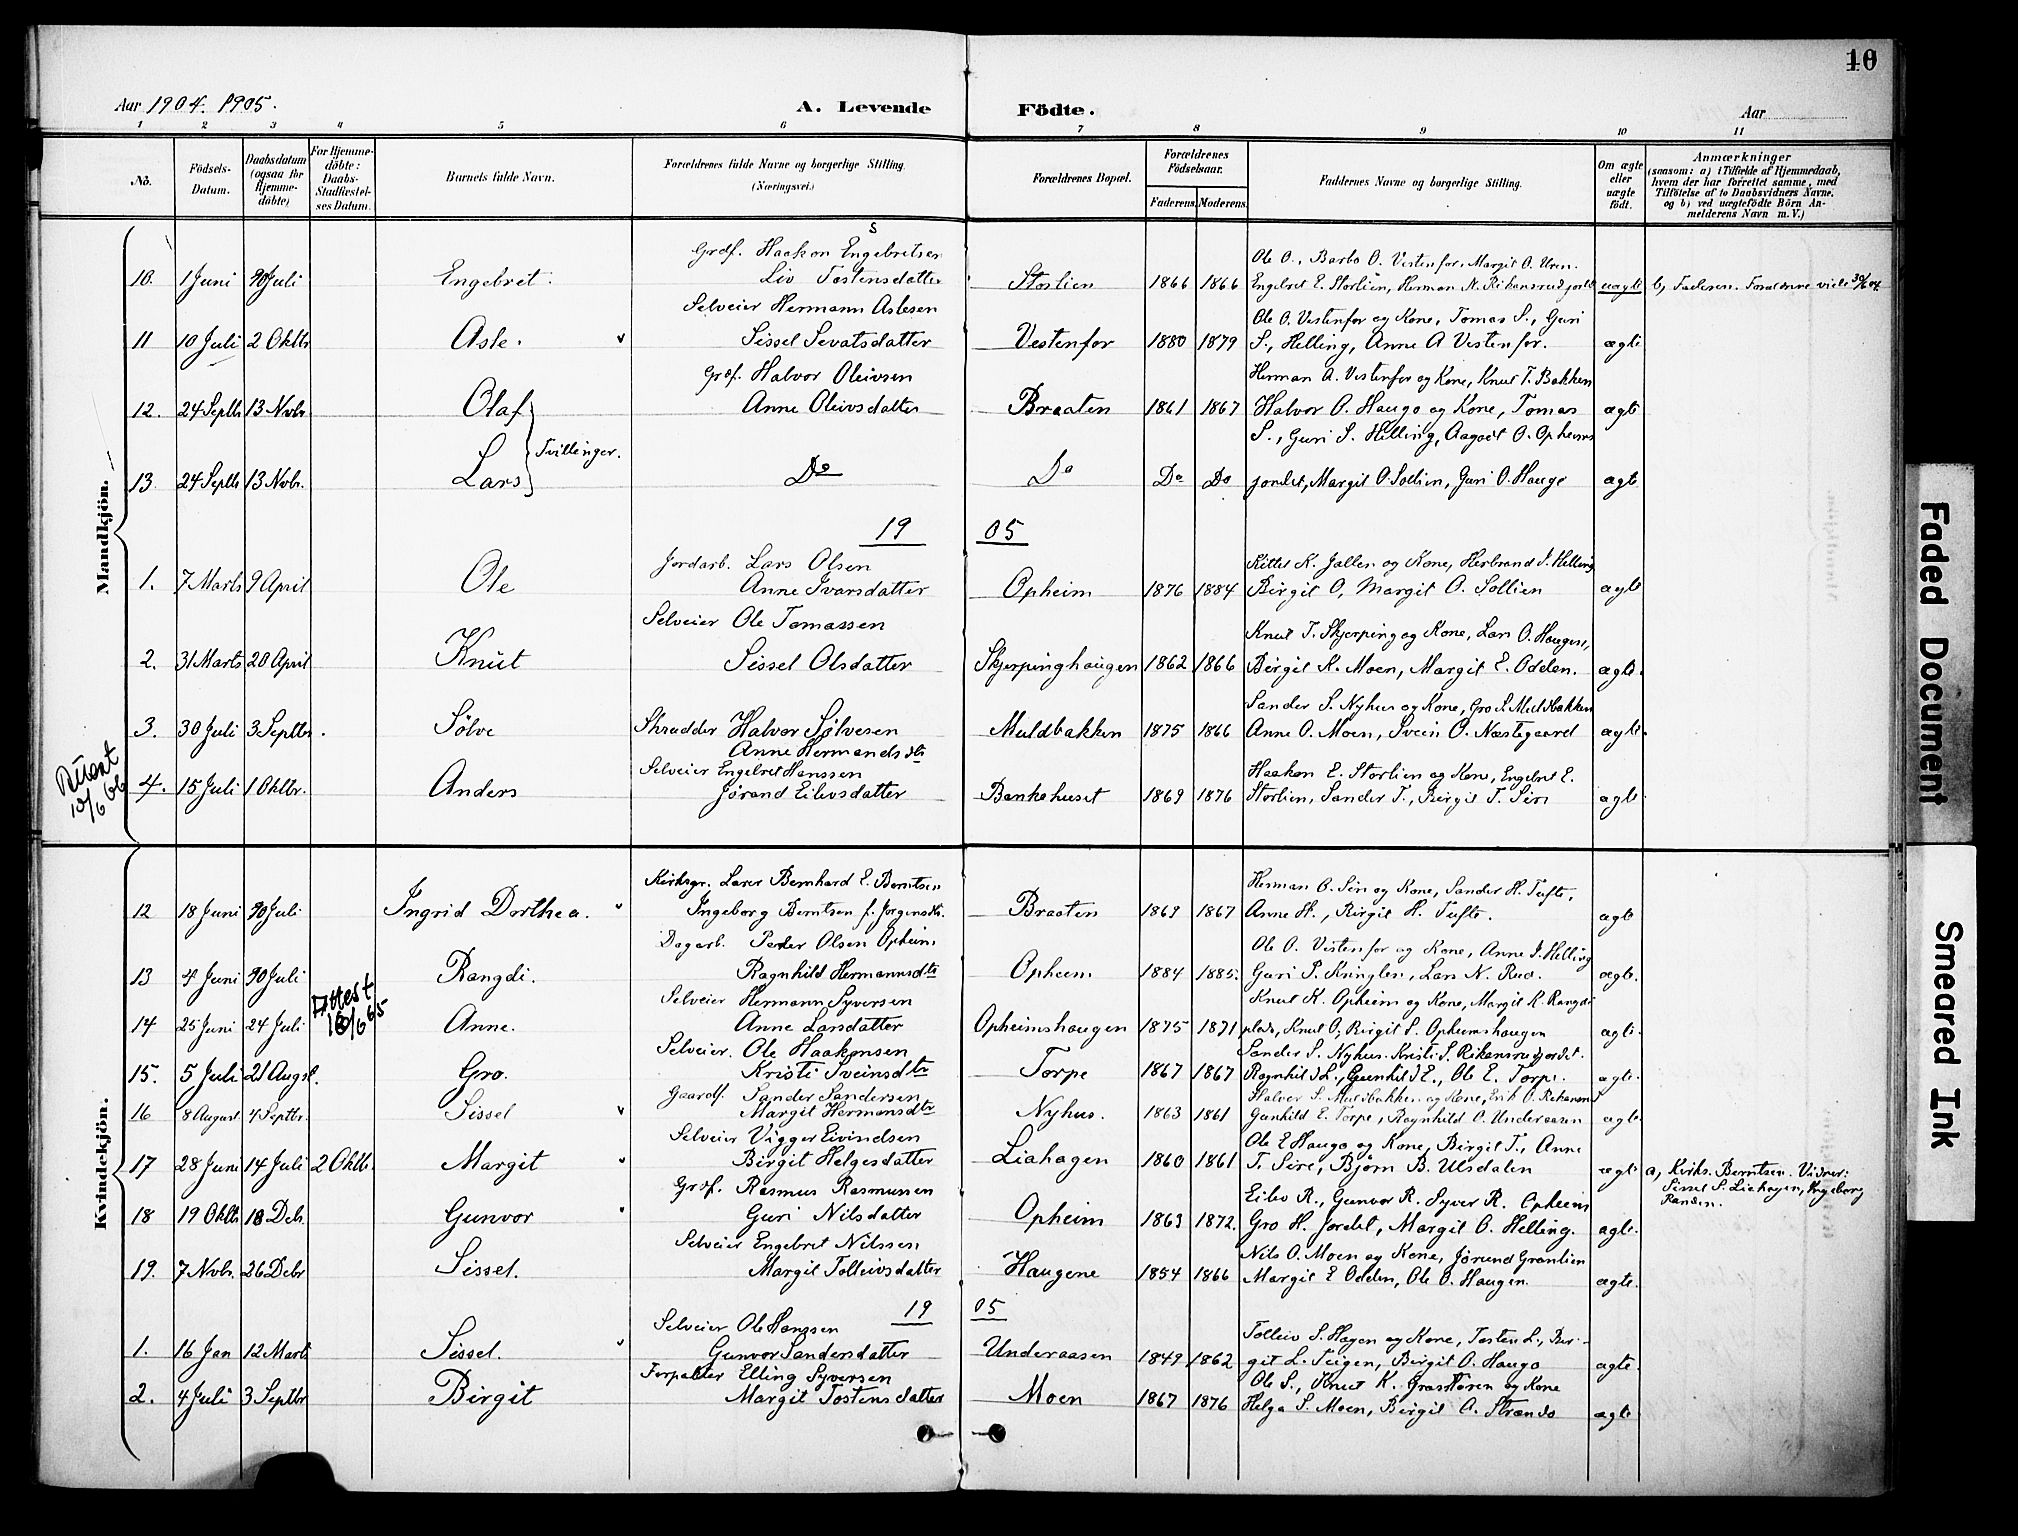 10
Aar 1904. 1905.
A. Levende Födte.
Aar
1 2 3 4 5 6 7 8 9 10 11
No.
Födsels-Datum.
Daabsdatum (ogsaa for Hjemme-döbte)
For Hjemme-döbte: Daabs-Stadfæstel-ses Datum.
Barnets fulde Navn.
Forældrenes fulde Navne og borgerlige Stilling. (Næringsvei.)
Forældrenes Bopæl.
Forældrenes Födselsaar.
Faderens. Moderens.
Faddernes Navne og borgerlige Stilling.
Om ægte eller uægte födt.
Anmærkninger
(saasom: a) i Tilfælde af Hjemmedaab, hvem der har forrettet samme, med Tilföielse af to Daabsvidners Navne, og b) ved uægtefödte Börn An-melderens Navn m. V.)
Mandkjön.
Grdf. Haakon Engebretsen
Ole O., Barbo O. Vestenfor, Margit O. Uren.
10. 1 Juni Juli Engebret. Liv Tostensdatter Storlien 1866 1866 Engebret E. Storlien, Herman N. uægte b, Faderen. Forældrene viede
Selveier Hermann Aslesen
Ole O. Vestenfor og Kone, Tomas S., Guri
11 10 Juli 2 Oktbr Asle. Sissel Sevatsdatter Vestenfor 1880 1879 S., Helling, Anne A Vestenfor. ægte
Grdf. Halvor Oleivsen
Herman A. Vestenfor og Kone, Knut T. Bakken
12. 24 Septbr 13 Nvbr Olaf Anne Oleivsdatter Braaten 1861 1867 Halvor O. Haugo og Kone, Tomas ægte
Tvillinger.
S., Guri S. Helling, Aagodt O. Opheims
13. 24 Septbr 13 Nvbr. Lars Do Do Do Do jordet, Margit O. Sollien, Guri O. Hauge ægte
19 05
Jordarb. Lars Olsen
Kittel K. Jallen og Kone, Herbrand S. Helling
1. 7 Marts 9 April Ole Anne Ivarsdatter Opheim 1876 1884 Birgit O, Margit O. Sollien ægte
Selveier Ole Tomassen
Knut T. Skjerping og Kone, Lars O. Haugen,
2. 31 Marts 20 April Knut Sissel Olsdatter Skjerpinghaugen 1862 1866 Birgit K. Moen, Margit E. Odden. ægte.
Sander S. Nyhus og Kone, Gro S. Muldbakken
3. 30 Juli 3 Septbr. Sølve Skrædder Halvor Sølvesen Muldbakken 1875 1866 Anne O. Moen, Svein O. Næstegaard ægte.
Anne Hermandsdtr
Attest 10/6 66
Selveier Engebret Hanssen
Haakon E. Storlien og Kone, Engebret E.
4. 15 Juli 1 Oktbr. Anders Jørand Eilevsdatter Bankehuset 1869 1876 Storlien, Sander T., Birgit T. Sire ægte
Kvindekjön.
Kirkesgr. Lærer Bernhard E. Berntsen
Herman O. Sire og Kone, Sander H. Tufte,
12 18 Juni Juli Ingrid Dorthea. Ingeborg Berntsen f. Jørgensdtr. Braaten 1869 1867 Anne H., Birgit H. Tufte. ægte
Dagarb. Peder Olsen Opheim
Ole O. Vestenfor og Kone, Anne S. Helling
13 4 Juni Juli Rangdi. Ragnhild Hermannsdtr Opheim 1884 1885. Guri P. Kringlen, Lars N. Rud. ægte.
Attest 18/6 65
Selveier Hermann Syversen
Knut K. Opheim og Kone, Margit K. Rangdi
14 25 Juni 24 Juli Anne. Anne Larsdatter Opheimshaugen 1875 1871 plads, Knut O, Birgit S. Opheimshaugen ægte.
Selveier. Ole Haakonsen
Sander S. Nyhus. Kristi S. Rikansrudjordet.
15. 5 Juli 21 Augst. Gro. Kristi Sveinsdtr Torpe 1867 1867 Ragnhild L., Gunhild E., Ole E. Torpe. ægte.
Gaardf. Sander Sandersen
Halvor S. Muldbakken og Kone, Erik O.
16 8 August 4 Septbr. Sissel Margit Hermansdtr Nyhus. 1863 1861 Gunhild E. Torpe, Ragnhild O. Underaasen ægte.
Selveier Vigger Eivindsen
Ole E Haugo og Kone, Birgit T., Anne
17 28 Juni 14 Juli 2 Oktb. Margit Birgit Helgesdatter Liahagen 1860 1861 T. Sire, Bjørn B. Ulsdalen ægte a, Kirks. Berntsen. Vidner:
Sissel S. Liahagen, Ingeborg
Randen.
Grdf. Rasmus Rasmussen
Eilev R., Gunvor R. Syver R. Opheim
18 19 Oktb 18 Debr Gunvor Guri Nilsdatter Opheim 1863 1872. Gro H. Jordet, Margit O. Helling. ægte.
Selveier Engebret Nilssen
Nils O. Moen og Kone, Jørund Grønlien
19. 7 Nvbr. 26 Debr Sissel. Margit Tolleivsdatter Haugene 1854 1866 Margit E Odden, Ole O. Haugen. ægte.
19 05
Selveier Ole Hanssen
Tolleiv S. Hagen og Kone, Tosten L., Bir-
1. 16 Jan 12 Marts Sissel. Gunvor Sandersdatter Underaasen 1849 1862 git L. Teigen, Birgit O. Haugo ægte.
Forpakter Elling Syversen
Ole S., Knut K. og Kone
2. 4 Juli 3 Septbr Birgit Margit Tostensdatter Moen 1867 1876 Helga S. Moen, Birgit A. Strande ægte
Faded Document
Smeared Ink